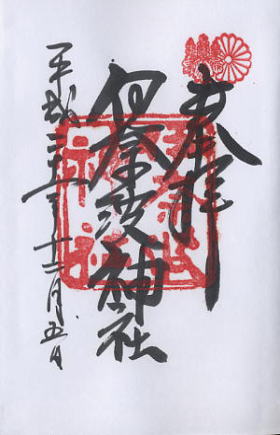 奉拝
伊奈波神社
平成二十五年十二月五日